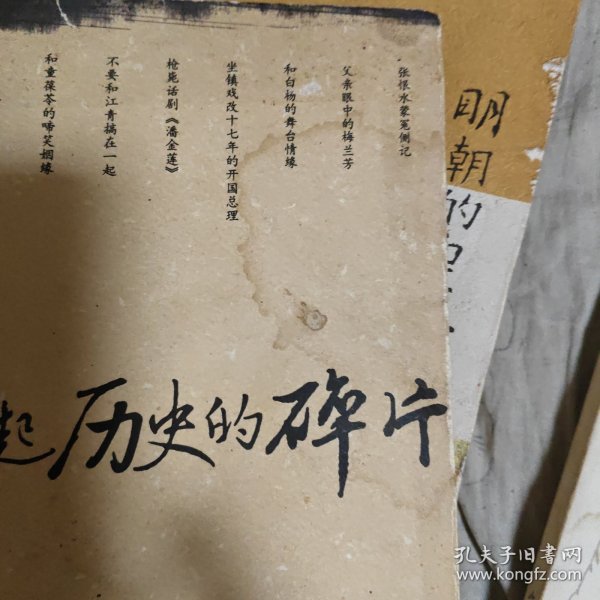 张恨水蒙冤侧记
父亲眼中的梅兰芳
和白杨的舞台情缘
坐镇戏改十七年的开国总理
枪毙话剧《潘金莲》
不要和江青搞在一起
和童葆苓的啼笑姻缘
起历史的碎片
明朝的
孔夫子旧书网
www.kongfz.com